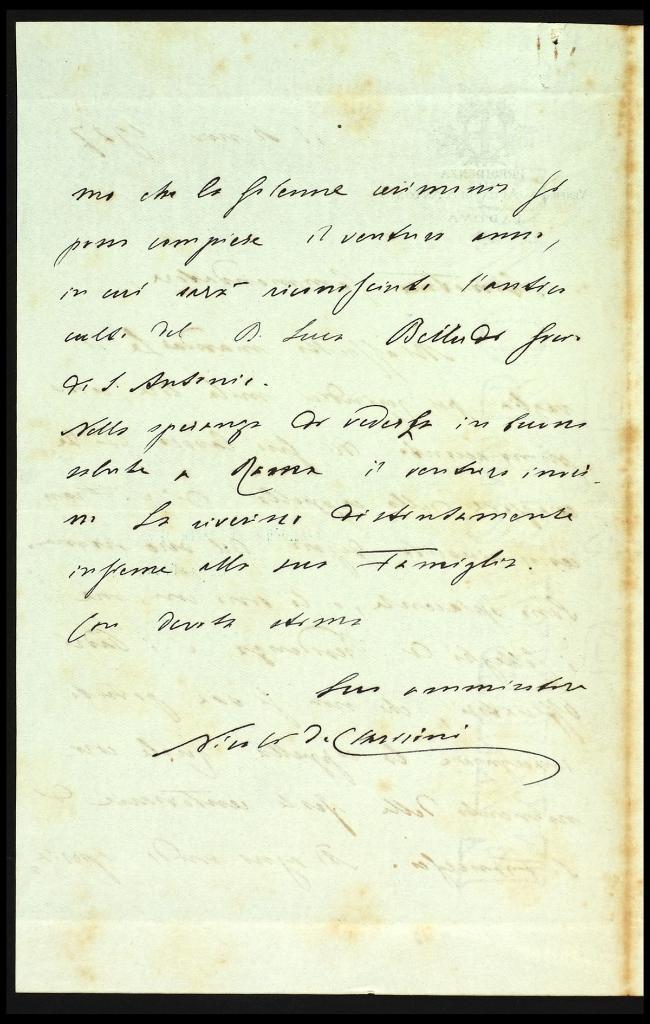 mo che la solenne cerimonia si
possa compiere il venturo anno,
in cui sarà riconosciuto l'antico
culto del B. Luca Belludi socio
di S. Antonio.
Nella speranza di vederla in buona
salute a Roma il venturo inver-
no La riverisco distintamente
insieme alla sua Famiglia.
Con devota stima
Suo ammiratore
Nicolò De Claricini